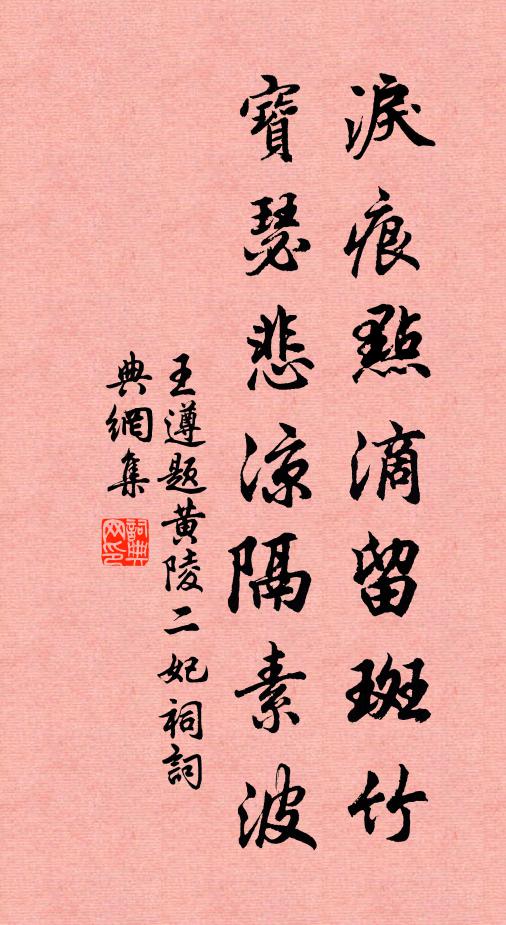 淚痕點滴留斑竹
寶瑟悲涼隔素波
王遵題黄陵二妃祠詞
典網集
詞典
网印